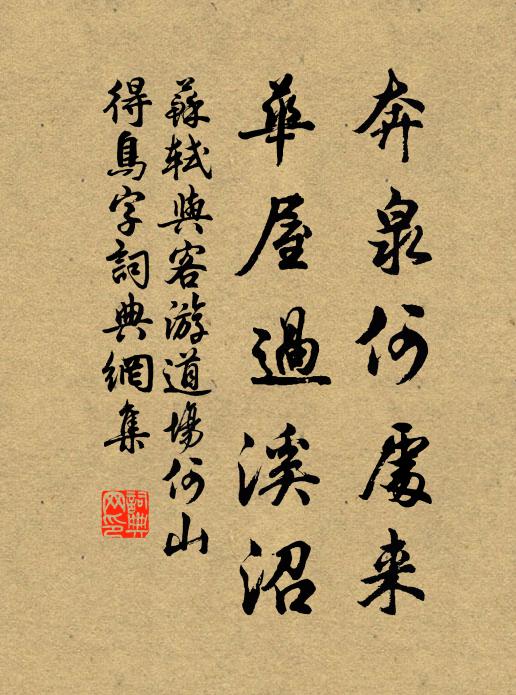 奔泉何處来
華屋過溪沼
蘇軾與客游道場何山
得鳥字詞典網集
詞典
网印